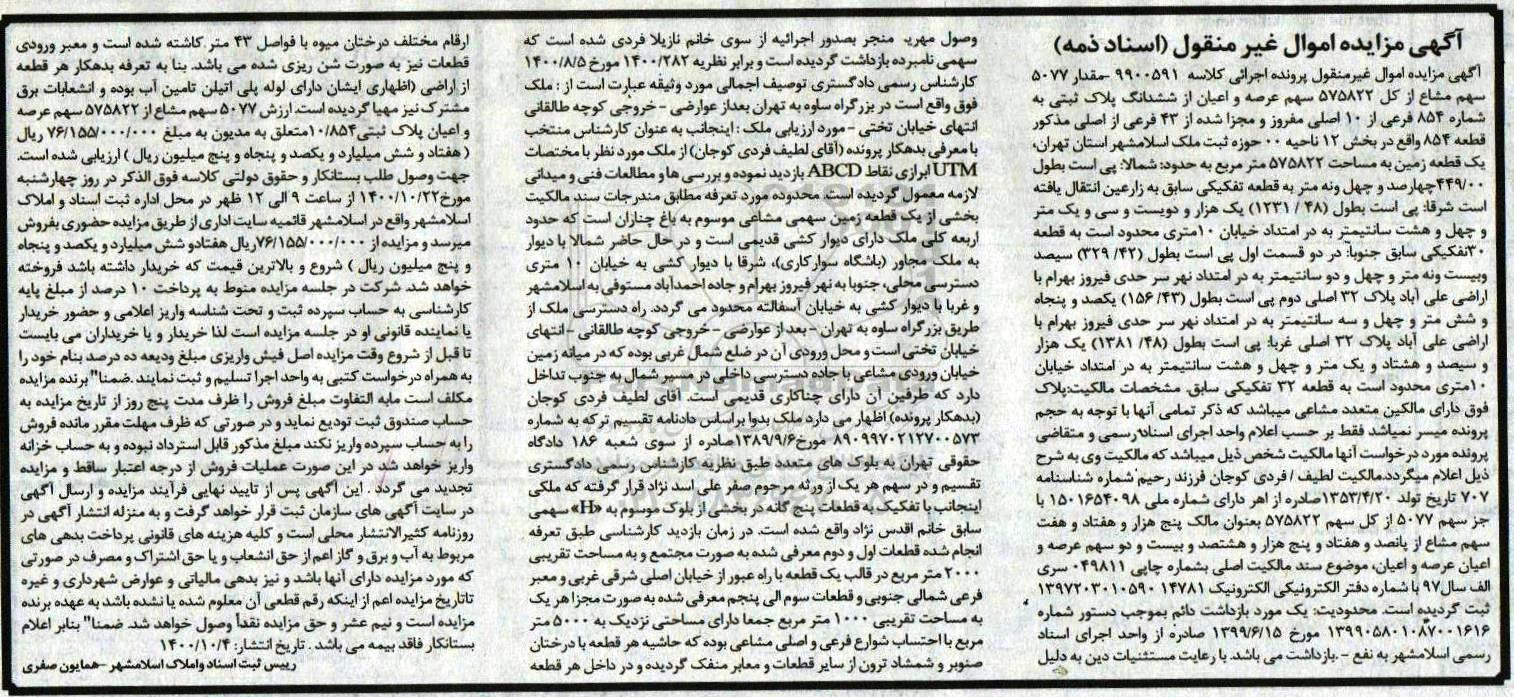 آگهی مزایده اموال غیر منقول (اسناد ذمه)
آگهی مزایده اموال غیرمنقول پرونده اجرائی کلاسه ۹۹۰۰۵۹۱ -مقدار ۵۰۷۷
سهم مشاع از کل ۵۷۵۸۲۲ سهم عرصه و اعیان از ششدانگ پلاک ثبتی به
شماره ۸۵۴ فرعی از ۱۰ اصلی مفروز و مجزا شده از ۴۳ فرعی از اصلی مذکور
قطعه ۸۵۴ واقع در بخش ۱۲ ناحیه ۰۰ حوزه ثبت ملک اسلامشهر استان تهران،
یک قطعه زمین به مساحت ۵۷۵۸۲۲ متر مربع به حدود: شمالا: پی است بطول
۴۴۹/۰۰چهارصد و چهل ونه متر به قطعه تفکیکی سابق به زارعین انتقال یافته
است شرقا: پی است بطول (۴۸ / ۱۲۳۱) یک هزار و دویست و سی و یک متر
و چهل و هشت سانتیمتر به در امتداد خیابان ۱۰متری محدود است به قطعه
۳۰تفکیکی سابق جنوبا: در دو قسمت اول پی است بطول (۴۲/ ۳۲۹) سیصد
وبیست ونه متر و چهل و دو سانتیمتر به در امتداد نهر سر حدی فیروز بهرام با
اراضی علی آباد پلاک ۳۲ اصلی دوم پی است بطول (۴۳/ ۱۵۶) یکصد و پنجاه
و شش متر و چهل و سه سانتیمتر به در امتداد نهر سر حدی فیروز بهرام با
اراضی علی آباد پلاک ۳۲ اصلی غربا: پی است بطول (۴۸/ ۱۳۸۱) یک هزار
و سیصد و هشتاد و یک متر و چهل و هشت سانتیمتر به در امتداد خیابان
۱۰متری محدود است به قطعه ۳۲ تفکیکی سابق. مشخصات مالکیت:پلاک
فوق دارای مالکین متعدد مشاعی میباشد که ذکر تمامی آنها با توجه به حجم
پرونده میسر نمیباشد فقط بر حسب اعلام واحد اجرای اسناد رسمی و متقاضی
پرونده مورد درخواست آنها مالکیت شخص ذیل میباشد که مالکیت وی به شرح
ذیل اعلام میگردد.مالکیت لطیف / فردی کوجان فرزند رحیم شماره شناسنامه
۷۰۷ تاریخ تولد ۱۳۵۳/۴/۲۰صادره از اهر دارای شماره ملی ۱۵۰۱۶۵۴۰۹۸ با
جز سهم ۵۰۷۷ از کل سهم ۵۷۵۸۲۲ بعنوان مالک پنج هزار و هفتاد و هفت
سهم مشاع از پانصد و هفتاد و پنج هزار و هشتصد و بیست و دو سهم عرصه و
اعیان عرصه و اعیان، موضوع سند مالکیت اصلی بشماره چاپی ۰۴۹۸۱۱ سری
الف سال۹۷ با شماره دفتر الکترونیکی الکترونیک ۱۴۷۸۱ ۱۳۹۷۲۰۳۰۱۰۵۹۰
ثبت گردیده است. محدودیت: یک مورد بازداشت دائم بموجب دستور شماره
۱۳۹۹۰۵۸۰۱۰۸۷۰۰۱۶۱۶ مورخ ۱۳۹۹/۶/۱۵ صادره از واحد اجرای اسناد
رسمی اسلامشهر به نفع -.بازداشت می باشد. با رعایت مستثنیات دین به دلیل
وصول مهریه منجر بصدور اجرائیه از سوی خانم نازیلا فردی شده است که
سهمی نامبرده بازداشت گردیده است و برابر نظریه ۱۴۰۰/۲۸۲ مورخ ۱۴۰۰/۸/۵
کارشناس رسمی دادگستری توصیف اجمالی مورد وثیقه عبارت است از : ملک
فوق واقع است در بزرگراه ساوه به تهران بعداز عوارضی - خروجی کوچه طالقانی
انتهای خیابان تختی - مورد ارزیابی ملک : اینجانب به عنوان کارشناس منتخب
با معرفی بدهکار پرونده (آقای لطیف فردی کوجان) از ملک مورد نظر با مختصات
UTM ابرازی نقاط ABCD بازدید نموده و بررسی ها و مطالعات فنی و میدانی
لازمه معمول گردیده است. محدوده مورد تعرفه مطابق مندرجات سند مالکیت
بخشی از یک قطعه زمین سهمی مشاعی موسوم به باغ چناران است که حدود
اربعه کلی ملک دارای دیوار کشی قدیمی است و در حال حاضر شمالا با دیوار
به ملک مجاور (باشگاه سوارکاری)، شرقا با دیوار کشی به خیابان ۱۰ متری
دسترسی محلی، جنوبا به نهر فیروز بهرام و جاده احمدآباد مستوفی به اسلامشهر
و غربا با دیوار کشی به خیابان آسفالته محدود می گردد. راه دسترسی ملک از
طریق بزرگراه ساوه به تهران - بعد از عوارضی - خروجی کوچه طالقانی - انتهای
خیابان تختی است و محل ورودی آن در ضلع شمال غربی بوده که در میانه زمین
خیابان ورودی مشاعی با جاده دسترسی داخلی در مسیر شمال به جنوب تداخل
دارد که طرفین آن دارای چناکاری قدیمی است. آقای لطیف فردی کوجان
(بدهکار پرونده) اظهار می دارد ملک بدوا براساس دادنامه تقسیم ترکه به شماره
۸۹۰۹۹۷۰۲۱۲۷۰۰۵۷۳ مورخ۱۳۸۹/۹/۶صادره از سوی شعبه ۱۸۶ دادگاه
حقوقی تهران به بلوک های متعدد طبق نظریه کارشناس رسمی دادگستری
تقسیم و در سهم هر یک از ورثه مرحوم صفر علی اسد نژاد قرار گرفته که ملکی
اینجانب با تفکیک به قطعات پنج گانه در بخشی از بلوک موسوم به «H» سهمی
سابق خانم اقدس نژاد واقع شده است. در زمان بازدید کارشناسی طبق تعرفه
انجام شده قطعات اول و دوم معرفی شده به صورت مجتمع و به مساحت تقریبی
۲۰۰۰ متر مربع در قالب یک قطعه با راه عبور از خیابان اصلی شرقی غربی و معبر
فرعی شمالی جنوبی و قطعات سوم الی پنجم معرفی شده به صورت مجزا هر یک
به مساحت تقریبی ۱۰۰۰ متر مربع جمعا دارای مساحتی نزدیک به ۵۰۰۰ متر
مربع با احتساب شوارع فرعی و اصلی مشاعی بوده که حاشیه هر قطعه با درختان
صنوبر و شمشاد ترون از سایر قطعات و معابر منفک گردیده و در داخل هر قطعه
ارقام مختلف درختان میوه با فواصل ۴۳ متر کاشته شده است و معبر ورودی
قطعات نیز به صورت شن ریزی شده می باشد. بنا به تعرفه بدهکار هر قطعه
از اراضی (اظهاری ایشان دارای لوله پلی اتیلن تامین آب بوده و انشعابات برق
مشترک نیز مهیا گردیده است. ارزش ۵۰۷۷ سهم مشاع از ۵۷۵۸۲۲ سهم عرصه
و اعیان پلاک ثبتی۱۰/۸۵۴متعلق به مدیون به مبلغ ۷۶/۱۵۵/۰۰۰/۰۰۰ ریال
( هفتاد و شش میلیارد و یکصد و پنجاه و پنج میلیون ریال ) ارزیابی شده است.
جهت وصول طلب بستانکار و حقوق دولتی کلاسه فوق الذکر در روز چهارشنبه
مورخ۱۴۰۰/۱۰/۲۲ از ساعت ۹ الی ۱۲ ظهر در محل اداره ثبت اسناد و املاک
اسلامشهر واقع در اسلامشهر قائمیه سایت اداری از طریق مزایده حضوری بفروش
میرسد و مزایده از ۷۶/۱۵۵/۰۰۰/۰۰۰ریال هفتادو شش میلیارد و یکصد و پنجاه
و پنج میلیون ریال ) شروع و بالاترین قیمت که خریدار داشته باشد فروخته
خواهد شد. شرکت در جلسه مزایده منوط به پرداخت ۱۰ درصد از مبلغ پایه
کارشناسی به حساب سپرده ثبت و تحت شناسه واریز اعلامی و حضور خریدار
یا نماینده قانونی او در جلسه مزایده است لذا خریدار و یا خریداران می بایست
تا قبل از شروع وقت مزایده اصل فیش واریزی مبلغ ودیعه ده درصد بنام خود را
به همراه درخواست کتبی به واحد اجرا تسلیم و ثبت نمایند .ضمنا" برنده مزایده
مکلف است مابه التفاوت مبلغ فروش را ظرف مدت پنج روز از تاریخ مزایده به
حساب صندوق ثبت تودیع نماید و در صورتی که ظرف مهلت مقرر مانده فروش
را به حساب سپرده واریز نکند مبلغ مذکور قابل استرداد نبوده و به حساب خزانه
واریز خواهد شد در این صورت عملیات فروش از درجه اعتبار ساقط و مزایده
تجدید می گردد . این آگهی پس از تایید نهایی فرآیند مزایده و ارسال آگهی
در سایت آگهی های سازمان ثبت قرار خواهد گرفت و به منزله انتشار آگهی در
روزنامه کثیرالانتشار محلی است و کلیه هزینه های قانونی پرداخت بدهی های
مربوط به آب و برق و گاز اعم از حق انشعاب و یا حق اشتراک و مصرف در صورتی
که مورد مزایده دارای آنها باشد و نیز بدهی مالیاتی و عوارض شهرداری و غیره
تاتاریخ مزایده اعم از اینکه رقم قطعی آن معلوم شده یا نشده باشد به عهده برنده
مزایده است و نیم عشر و حق مزایده نقداً وصول خواهد شد. ضمنا" بنابر اعلام
بستانکار فاقد بیمه می باشد . تاریخ انتشار: ۱۴۰۰/۱۰/۴
رییس ثبت اسناد واملاک اسلامشهر -همایون صفری